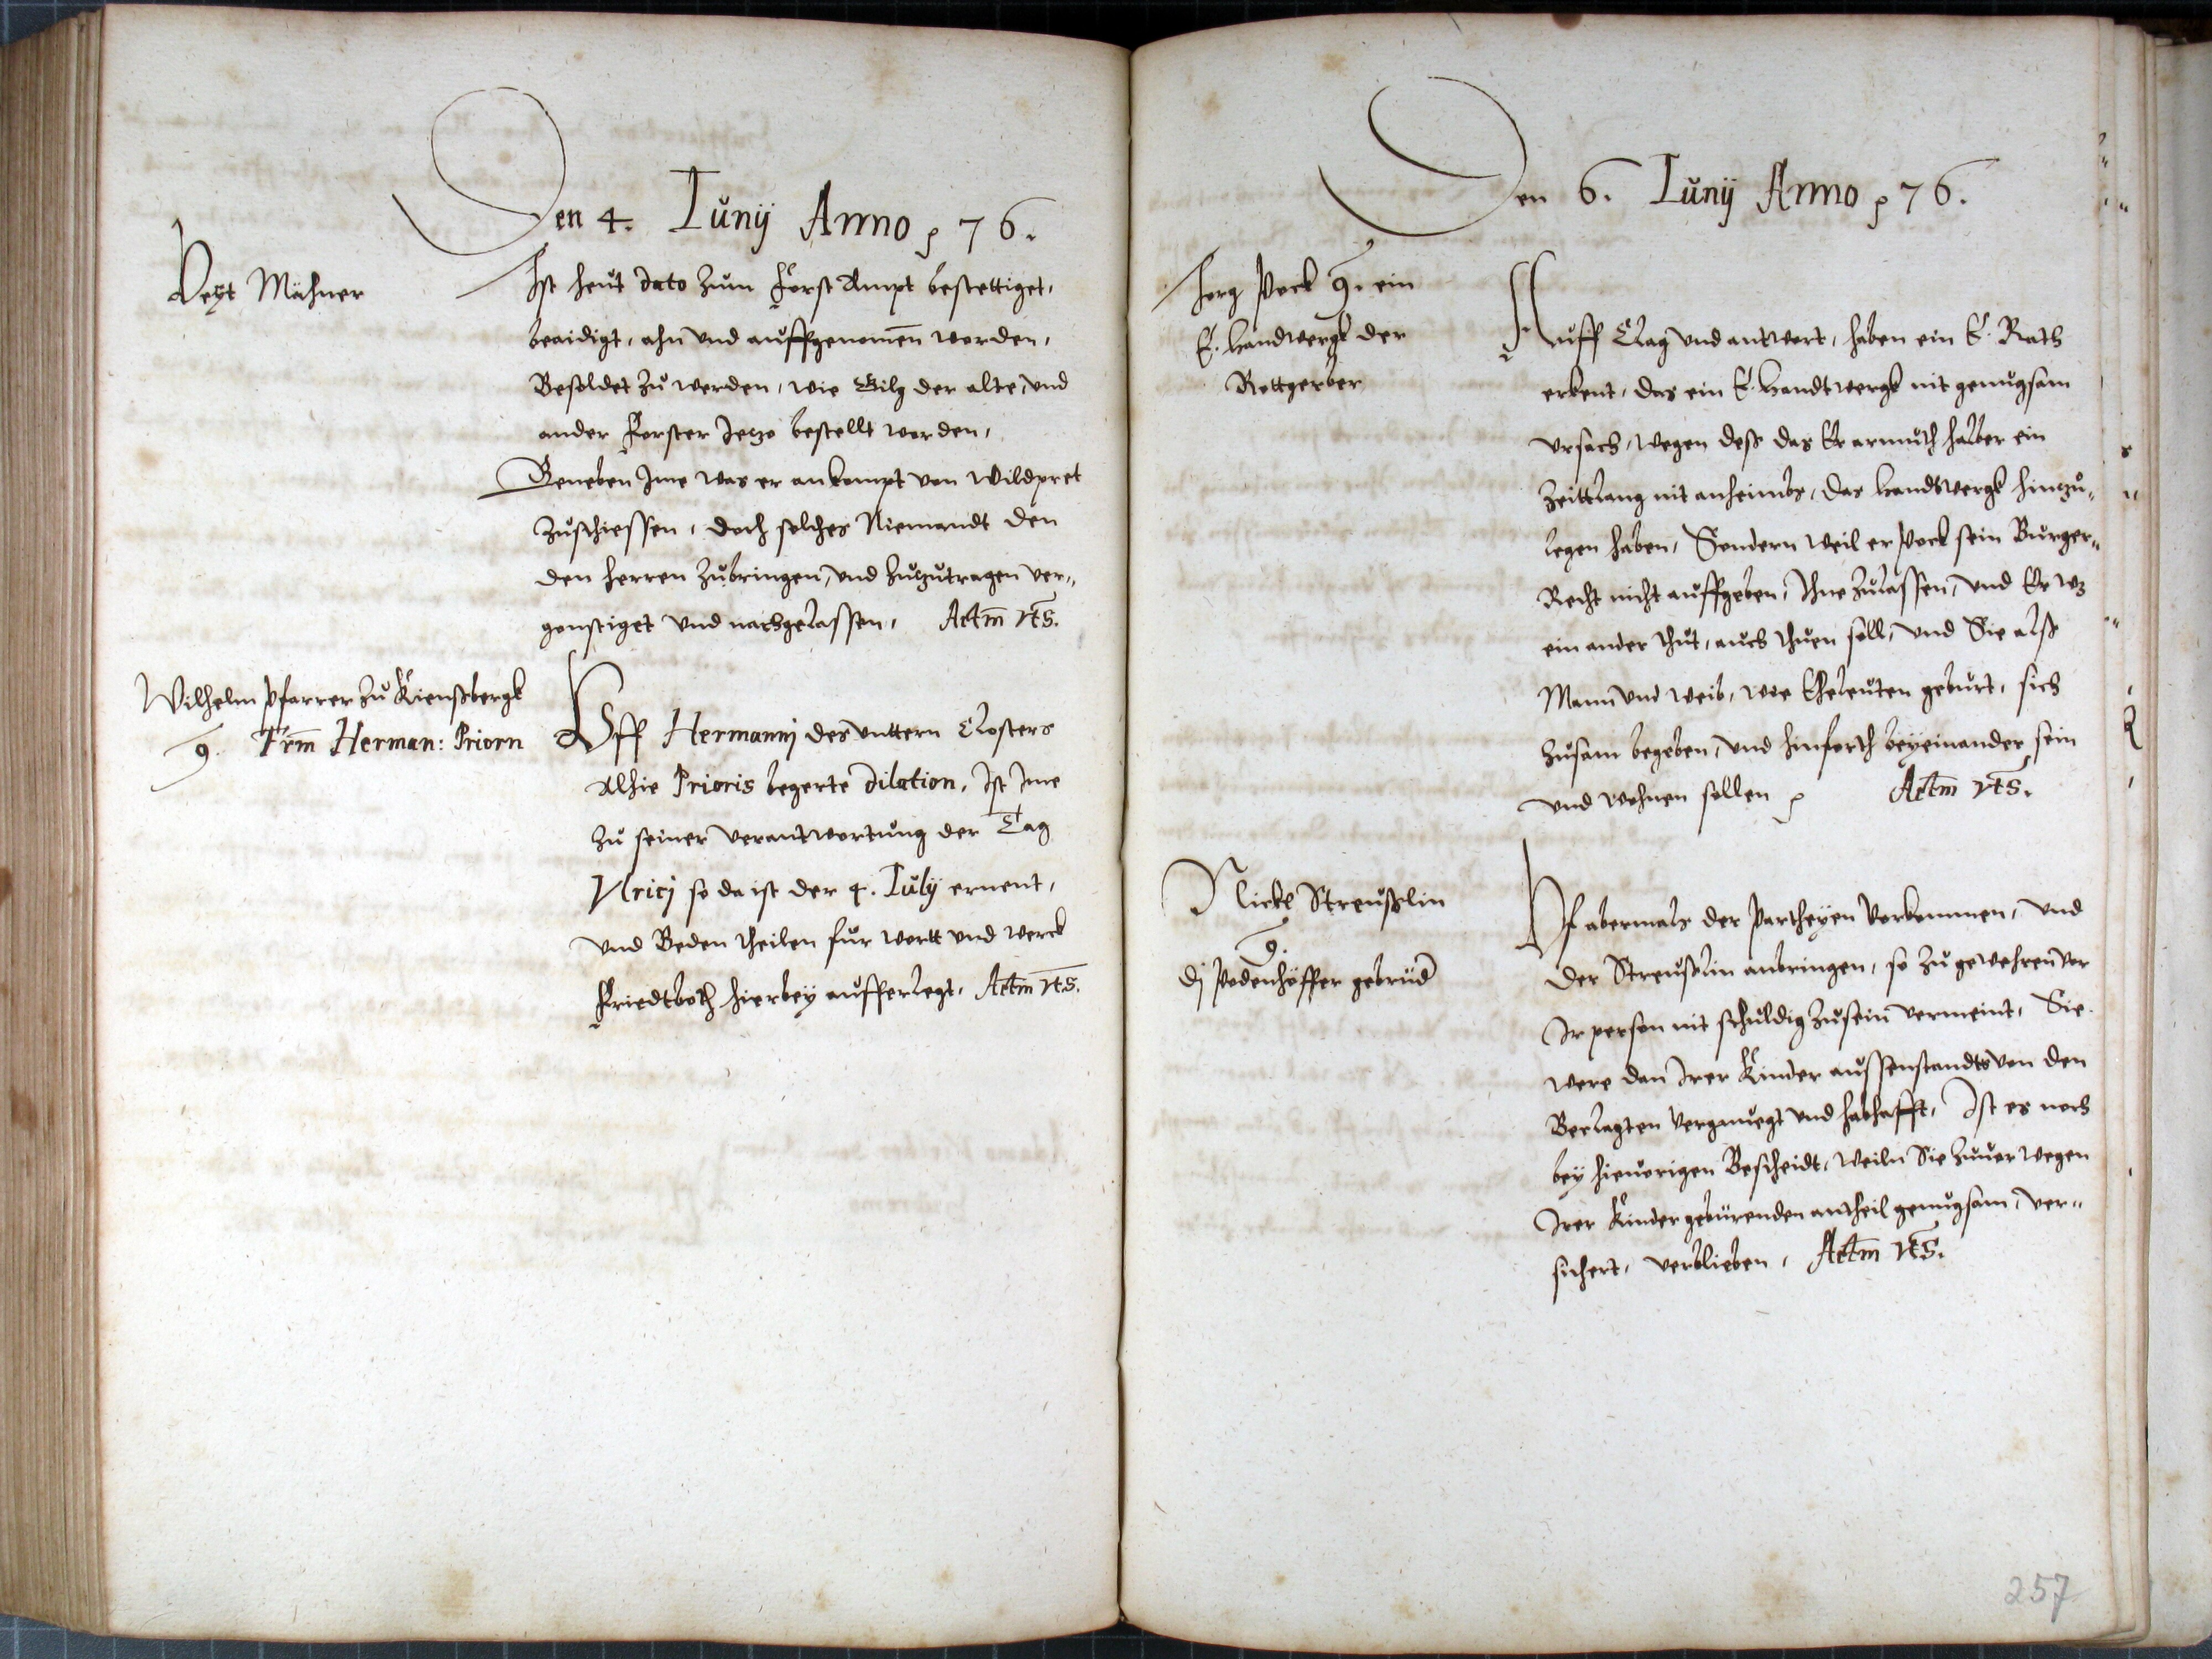 Den 4. Iunij Anno p 76.
Veyt Mähner
Ist heut dato zum Forst Ampt bestettiget,
beaidigt, ahn und auffgenomen worden,
Besoldet zu werden, wie Gilg der alte, und
ander Forster Jetzo bestellt worden,
Beneben Ime was er ankompt von Wildpret
zuschiessen, doch solches Niemandt den
den Herren zubringen, und zuzutragen ver„
gonstiget und nachgelassen, Actm ut s.
Wilhelm Pfarrer zu Kienßbergk
9. Frm Herman: Priorn
Uff Hermannj des unttern Closters
Alhie Prioris begerte dilation, Ist Ime
zu seiner verantwortung der Tag
Ulricj so da ist der 4. Iulij ernent,
und Beden theilen fur wortt und werck
Friedtboth hierbey aufferlegt, Actm ut s.
Den 6. Iunij Anno p 76.
Jorg Pock 9. ein
E. Handwergk der
Rottgerber
Auff Clag und antwort, haben ein E. Rath
erkent, das ein E. Handtwergk nit genugsam
ursach, wegen deß das Er armuth halber ein
Zeittlang nit anheimbs, das Handtwergk hinzu„
legen haben, Sondern weil er Pock sein Burger„
Recht nicht auffgeben, Ihne zulassen, und Er wz
ein ander thut, auch thuen soll, und Sie alß
Mann und weib, wie Eheleuten geburt, sich
zusam begeben, und hinforth beyeinander sein
und wohnen sollen p Actm ut s.
Nickl Streußlin
9.
dj Podenhöffer gebrüd
Uf abermals der Partheyen Vorkommen, und
der Streußlin anbringen, so zu gewehren vor
Ir person nit schuldig zusein vermeint, Sie
were dan Irer Kinder aussenstandts von den
Beclagten Vergenuegt und habhafft, Ist es noch
bey hieuorigen Bescheidt, weiln Sie zuuor wegen
Irer Kinder gebürenden antheil genugsam, ver„
sichert, verblieben, Actm ut s.
257